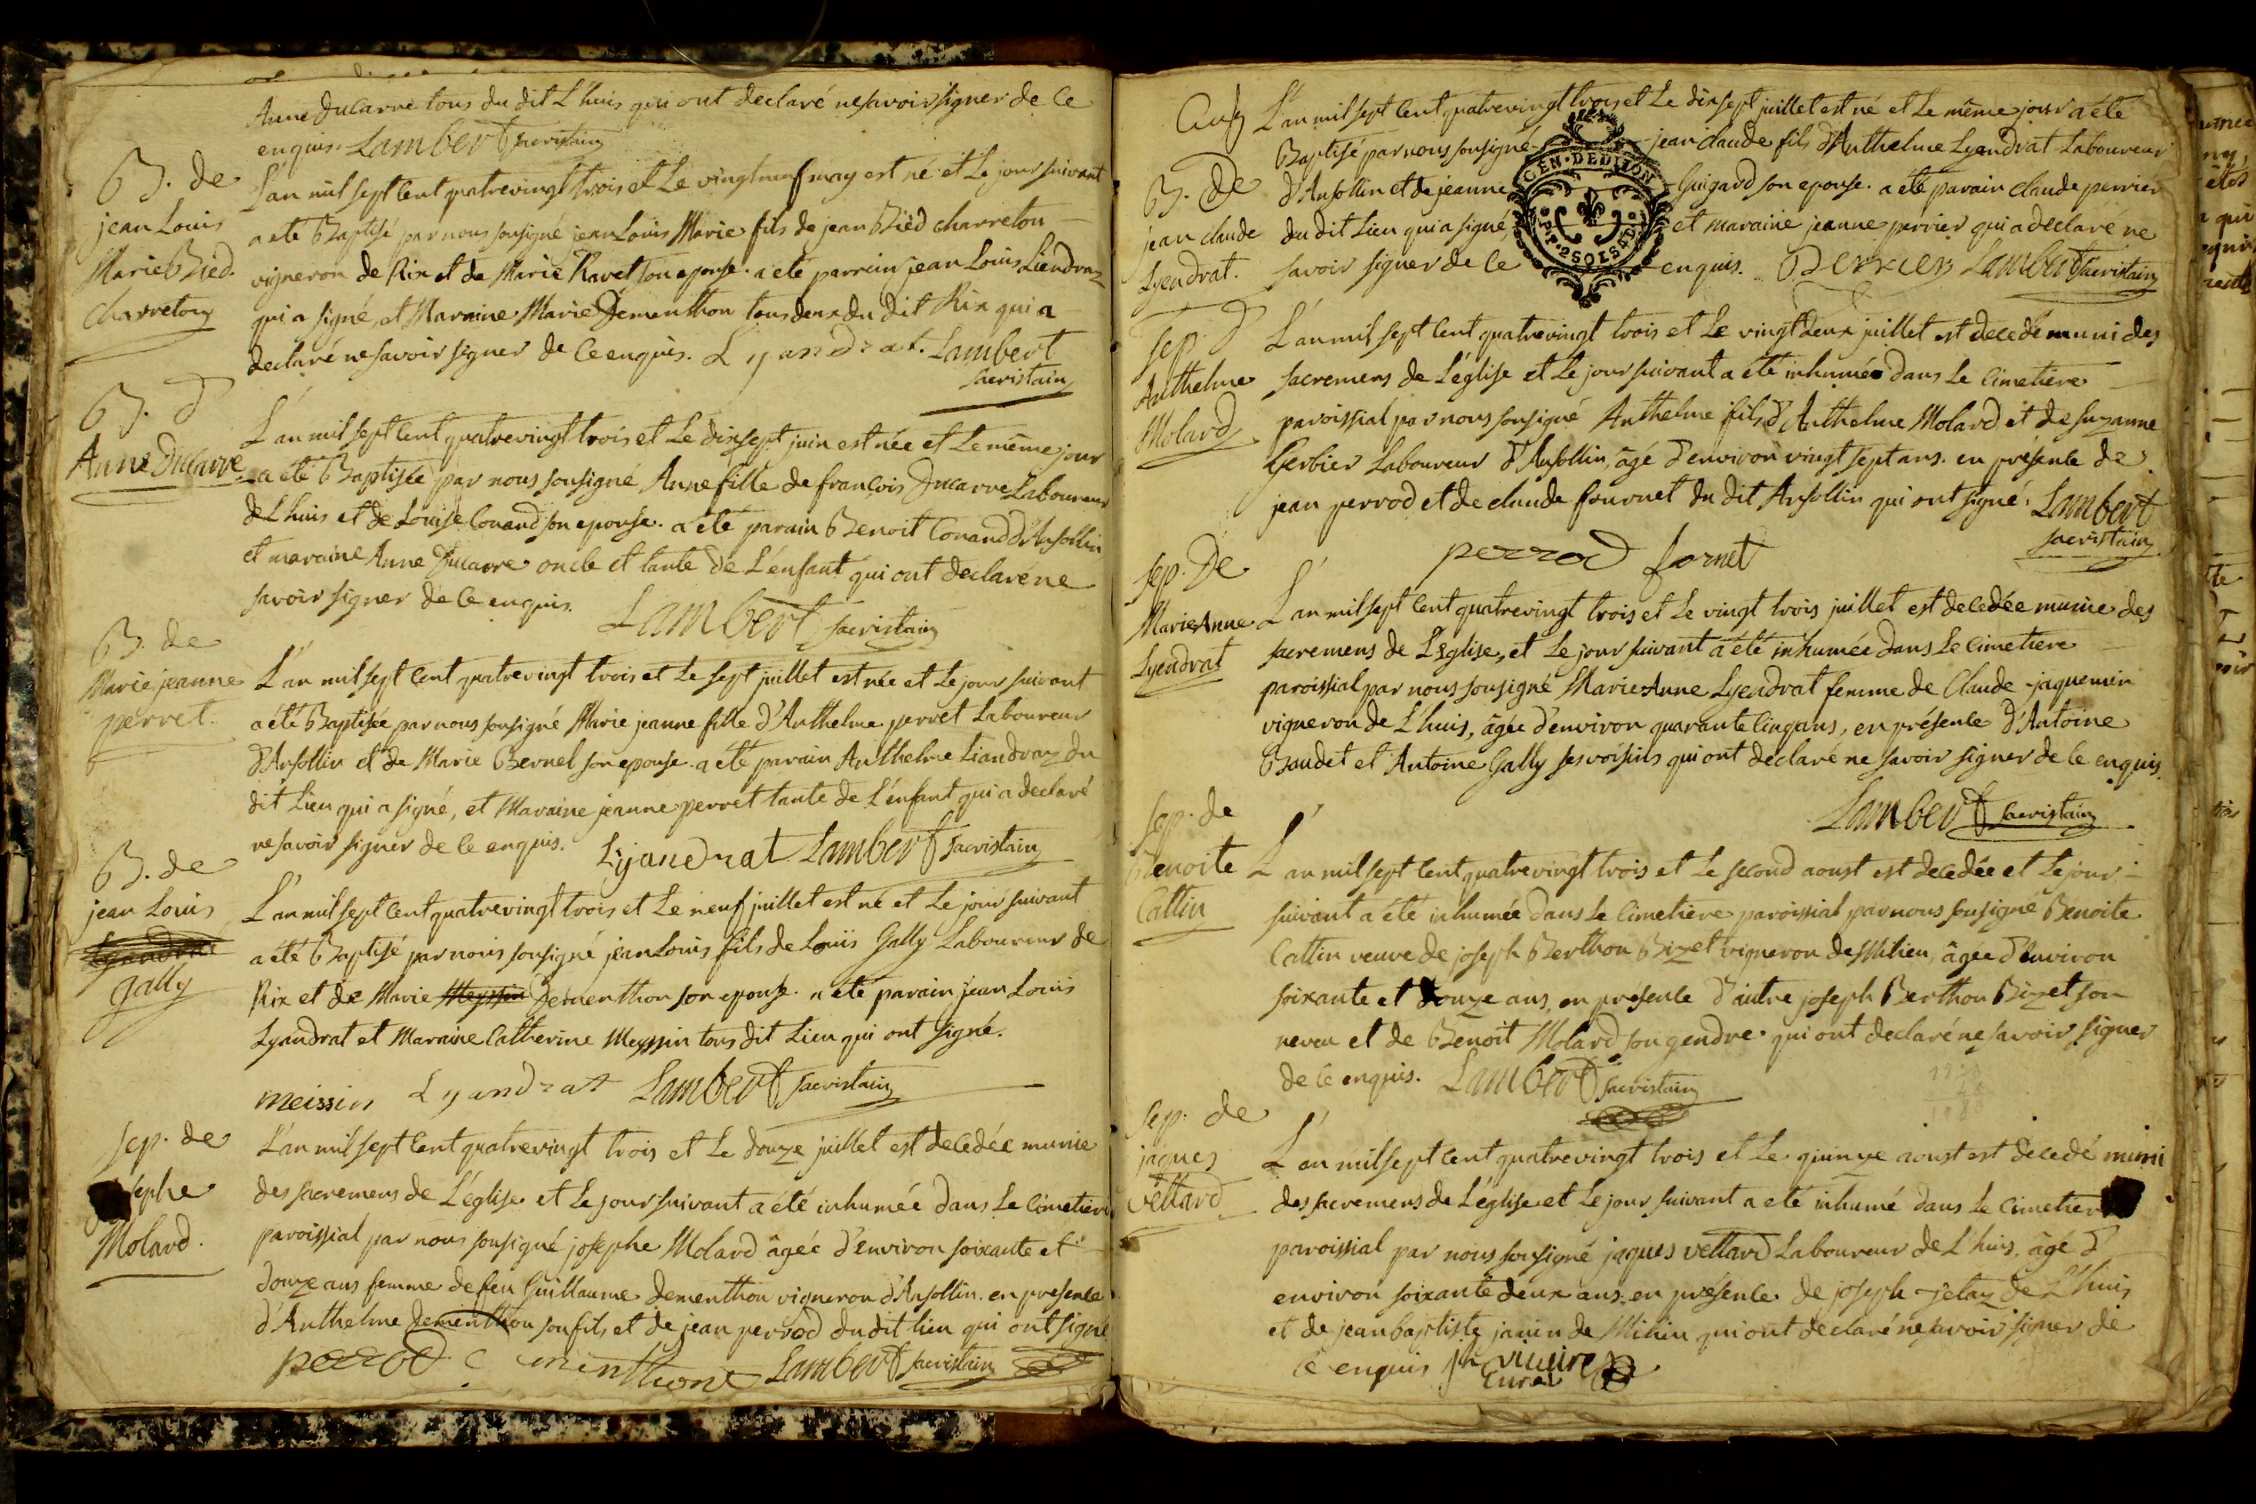 Anne Ducarre tous du dit L'huis qui ont declaré ne savoir signer de ce
enquis. Lambert sacristain
B. de
jean Louis
Marie Bied
charreton
L'an mil sept cent quatrevingt trois et Le vingt neuf may est né et Le jour suivant
a eté Baptisé par nous sousigné jean Louis Marie fils de jean Bied charreton
vigneron de Rix et de Marie Ravet son epouse. a eté parrain jean Louis Liendraz
qui a signé, et Maraine Marie Dementhon tous deux du dit Rix qui a
declaré ne savoir signer de ce enquis. Lyandrat. Lambert
sacristain
B. d
Anne Ducarre
L'an mil sept cent quatrevingt trois et Le dixsept juin est née et Le même jour
a été Baptisée par nous sousigné Anne fille de françois Ducarre Laboureur
de L'huis et de Louise Conand son epouse. a été parain Benoit Conand d'Ansollin
et maraine Anne Ducarre oncle et tante de L'enfant qui ont declaré ne
savoir signer de ce enquis. Lambert sacristain
B. de
Marie jeanne
perret.
L'an mil sept cent quatrevingt trois et Le sept juillet est née et Le jour suivant
a été Baptisée par nous sousigné Marie jeanne fille d'Anthelme perret Laboureur
d'Ansollin et de Marie Bernel son epouse. a été parain Anthelme Liandraz du
dit Lieu qui a signé, et Maraine jeanne perret tante de L'enfant qui a declaré
ne savoir signer de ce enquis. Lyandrat Lambert sacristain
B. de
jean Louis
Gally
L'an mil sept cent quatrevingt trois et Le neuf juillet est né et Le jour suivant
a été Baptisé par nous sousigné jean Louis fils de Louis Gally Laboureur de
Rix et de Marie Meyssin Dementhon son epouse. a eté parain jean Louis
Lyandrat et Maraine Catherine Meyssin tous dit Lieu qui ont signé.
meissin Lyandrat Lambert sacristain
sep. de
sephe
Molard.
L'an mil sept cent quatrevingt trois et Le douze juillet est decedée munie
des sacremens de L'église et Le jour suivant a été inhumée dans Le Cimetiere
paroissial par nous sousigné josephe Molard âgée d'environ soixante et
douze ans femme de feu Guillaume dementhon vigneron d'Ansollin. en presence
d'Anthelme dementhon son fils et de jean perrod du dit lieu qui ont signé
perrod menthont Lambert sacristain
B. de
jean claude
Lyendrat.
L'an mil sept cent quatrevingt trois et Le dixsept juillet est né et Le même jour a été
Baptisé par nous sousigné jean claude fils d'Anthelme Lyendrat Laboureur
d'Ansollin et de jeanne Guigard son epouse. a été parain claude perrier
du dit Lieu qui a signé, et maraine jeanne perrier qui a declaré ne
savoir signer de ce enquis. Perrier Lambert sacristain
GEN. DE DIJON
P.P. 2 SOLS 4 D
sep. d
Anthelme
Molard
L'an mil sept cent quatrevingt trois et Le vingt deux juillet est decedé muni des
sacremens de L'église et Le jour suivant a été inhumé dans Le Cimetiere
paroissial par nous sousigné Anthelme fils d'Anthelme Molard et de suzanne
Gerbier Laboureur d'Ansollin, âgé d'environ vingt sept ans. en présence de
jean perrod et de claude fournet du dit Ansollin qui ont signé. Lambert
perrod fornet sacristain
sep. De
Marie Anne
Lyendrat
L'an mil sept cent quatrevingt trois et Le vingt trois juillet est decedée munie des
sacremens de L'église, et Le jour suivant a été inhumée dans Le Cimetiere
paroissial par nous sousigné Marie Anne Lyendrat femme de Claude jaquemin
vigneron de L'huis, âgée d'environ quarante cinq ans, en présence d'Antoine
Baudet et Antoine Gally ses voisins qui ont declaré ne savoir signer de ce enquis.
Lambert sacristain
sep. de
Benoite
Cattin
L'an mil sept cent quatrevingt trois et Le second aoust est decedée et Le jour
suivant a été inhumée dans Le Cimetiere paroissial par nous sousigné Benoite
Cattin veuve de joseph Berthon Bizet vigneron de Milieu, âgée d'environ
soixante et douze ans, en présence d'autre joseph Berthon Bizet son
neveu et de Benoit Molard son gendre qui ont declaré ne savoir signer
de ce enquis. Lambert sacristain
sep. de
jaques
Vettard
L'an mil sept cent quatrevingt trois et Le quinze aoust est decedé muni
des sacremens de L'église et Le jour suivant a été inhumé dans Le Cimetier
paroissial par nous sousigné jaques vettard Laboureur de L'huis, âgé d'
environ soixante deux ans. en présence de joseph jetaz de L'huis
et de jean baptiste janin de Milieu qui ont declaré ne savoir signer de
ce enquis
Curé